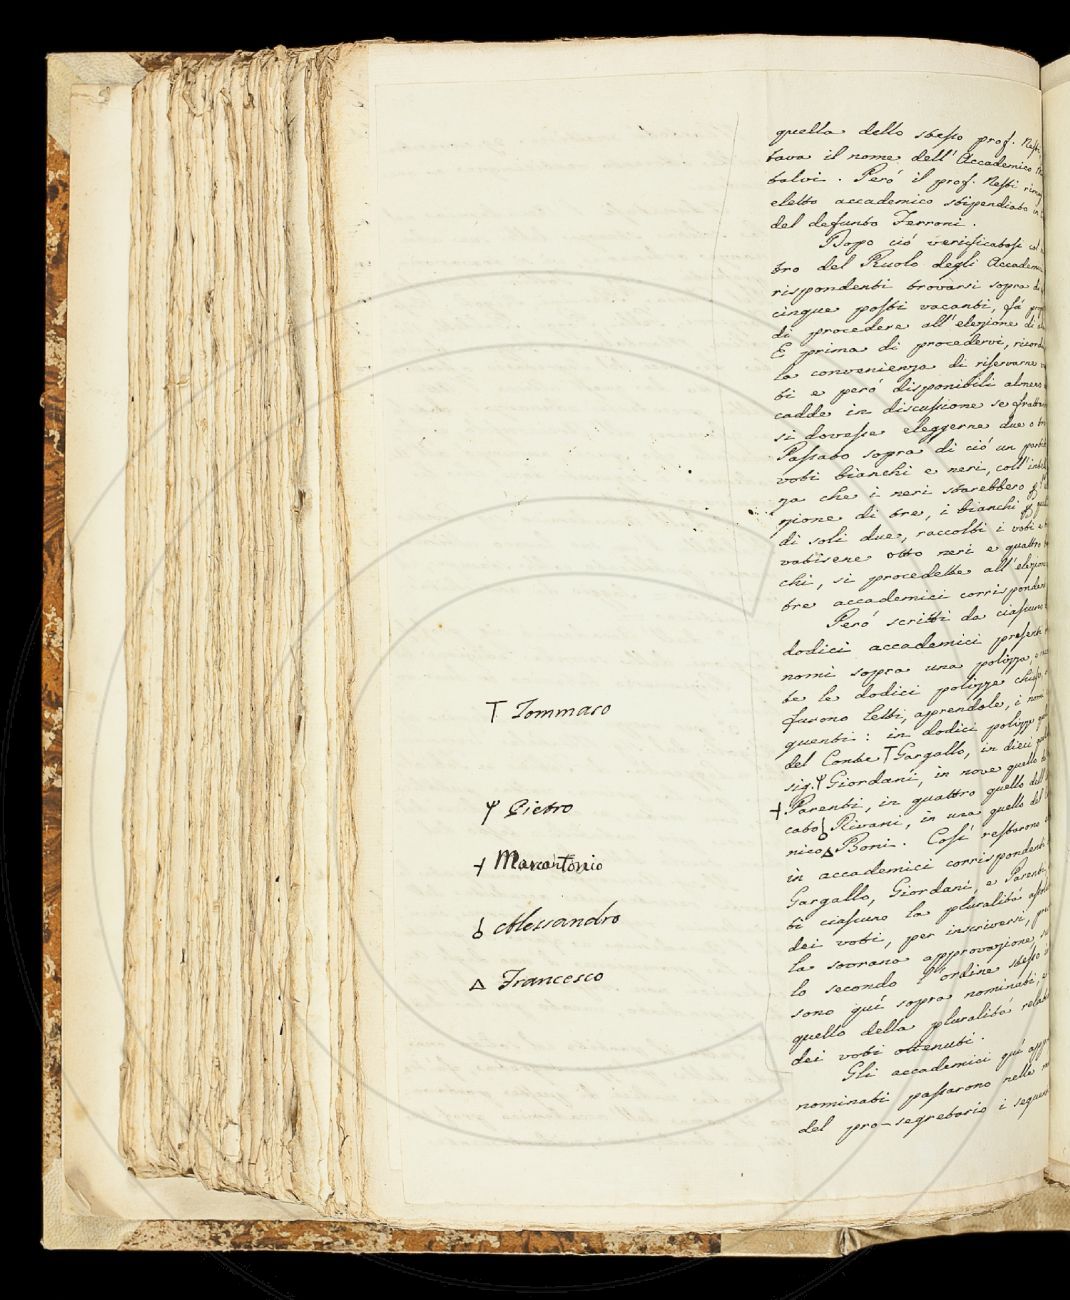 quella dello stesso prof. Nesti,
tava il nome dell' Accademico
talvi. Però il prof. Nesti
eletto accademico stipendiato in
del defunto Ferroni.
Dopo ciò verificatosi col
tro del Ruolo degli Accadem
rispondenti trovarsi sopra
cinque posti vacanti, fà
di procedere all' elezione di
E prima di procedervi, ricord
la convenienza di riservarne
ti e però disponibili almeno
cadde in discussione se
si dovesse eleggerne due o
Passato sopra di ciò un
voti bianchi e neri, coll'
za che i neri starebbero
zione di tre, i bianchi
di soli due, raccolti i voti e
vatisene otto neri e quattro
chi, si procedette all' elezione
tre accademici corrisponden
Però scritti da ciascuno
dodici accademici presenti
nomi sopra una polizza,
te le dodici polizze
furono letti, aprendole, i nomi
guenti: in dodici polizze
del Conte T Gargallo, in dieci
sig. Ψ Giordani, in nove quello
+ Parenti, in quattro quello dell
cato ♁ Rivani, in una quello del
nico Δ Boni. Così restarono
in accademici corrispondenti
Gargallo, Giordani, e Parenti,
ti ciascuno la pluralità
dei voti, per inscriversi,
la sovrana approvazione
lo secondo l' ordine stesso
sono quì sopra nominati,
quello della pluralità relat
dei voti ottenuti.
Gli accademici quì app
nominati passarono nelle
del pro-segretario i seguen
T Tommaso
Ψ Pietro
+ Marcantonio
♁ Alessandro
Δ Francesco